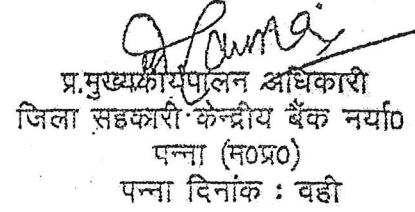 प्र.मुख्यकार्यपालन अधिकारी
जिला सहकारी केन्द्रीय बैंक नर्या0
पन्ना (म0प्र0)
पन्ना दिनांक : वही